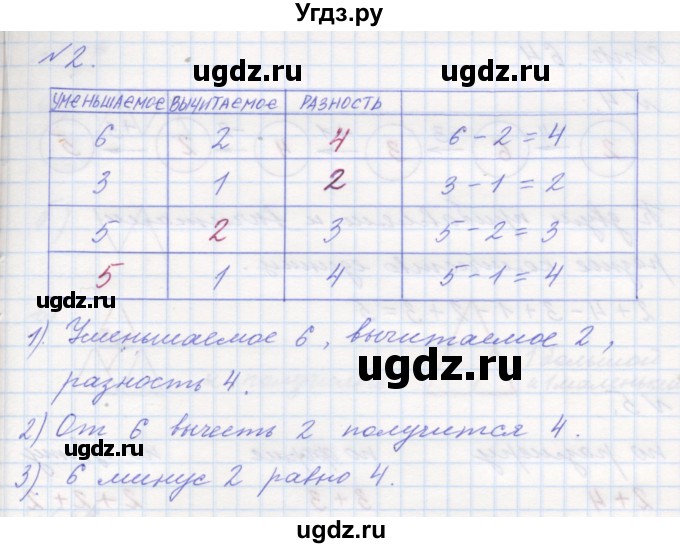 Угдз.ру
№2.
ugdz.ru ugdz.ru
УМЕНЬШАЕМОЕ ВЫЧИТАЕМОЕ РАЗНОСТЬ
6 2 4 6-2=4
3 1 2 3-1=2
5 2 3 5-2=3
5 1 4 5-1=4
ugdz.ru ugdz.ru
1) Уменьшаемое 6, вычитаемое 2,
ugdz.ru
разность 4.
ugdz.ru
2) От 6 вычесть 2 получится 4.
3) 6 минус 2 равно 4.
ugdz.ru ugdz.ru
ugdz.ru